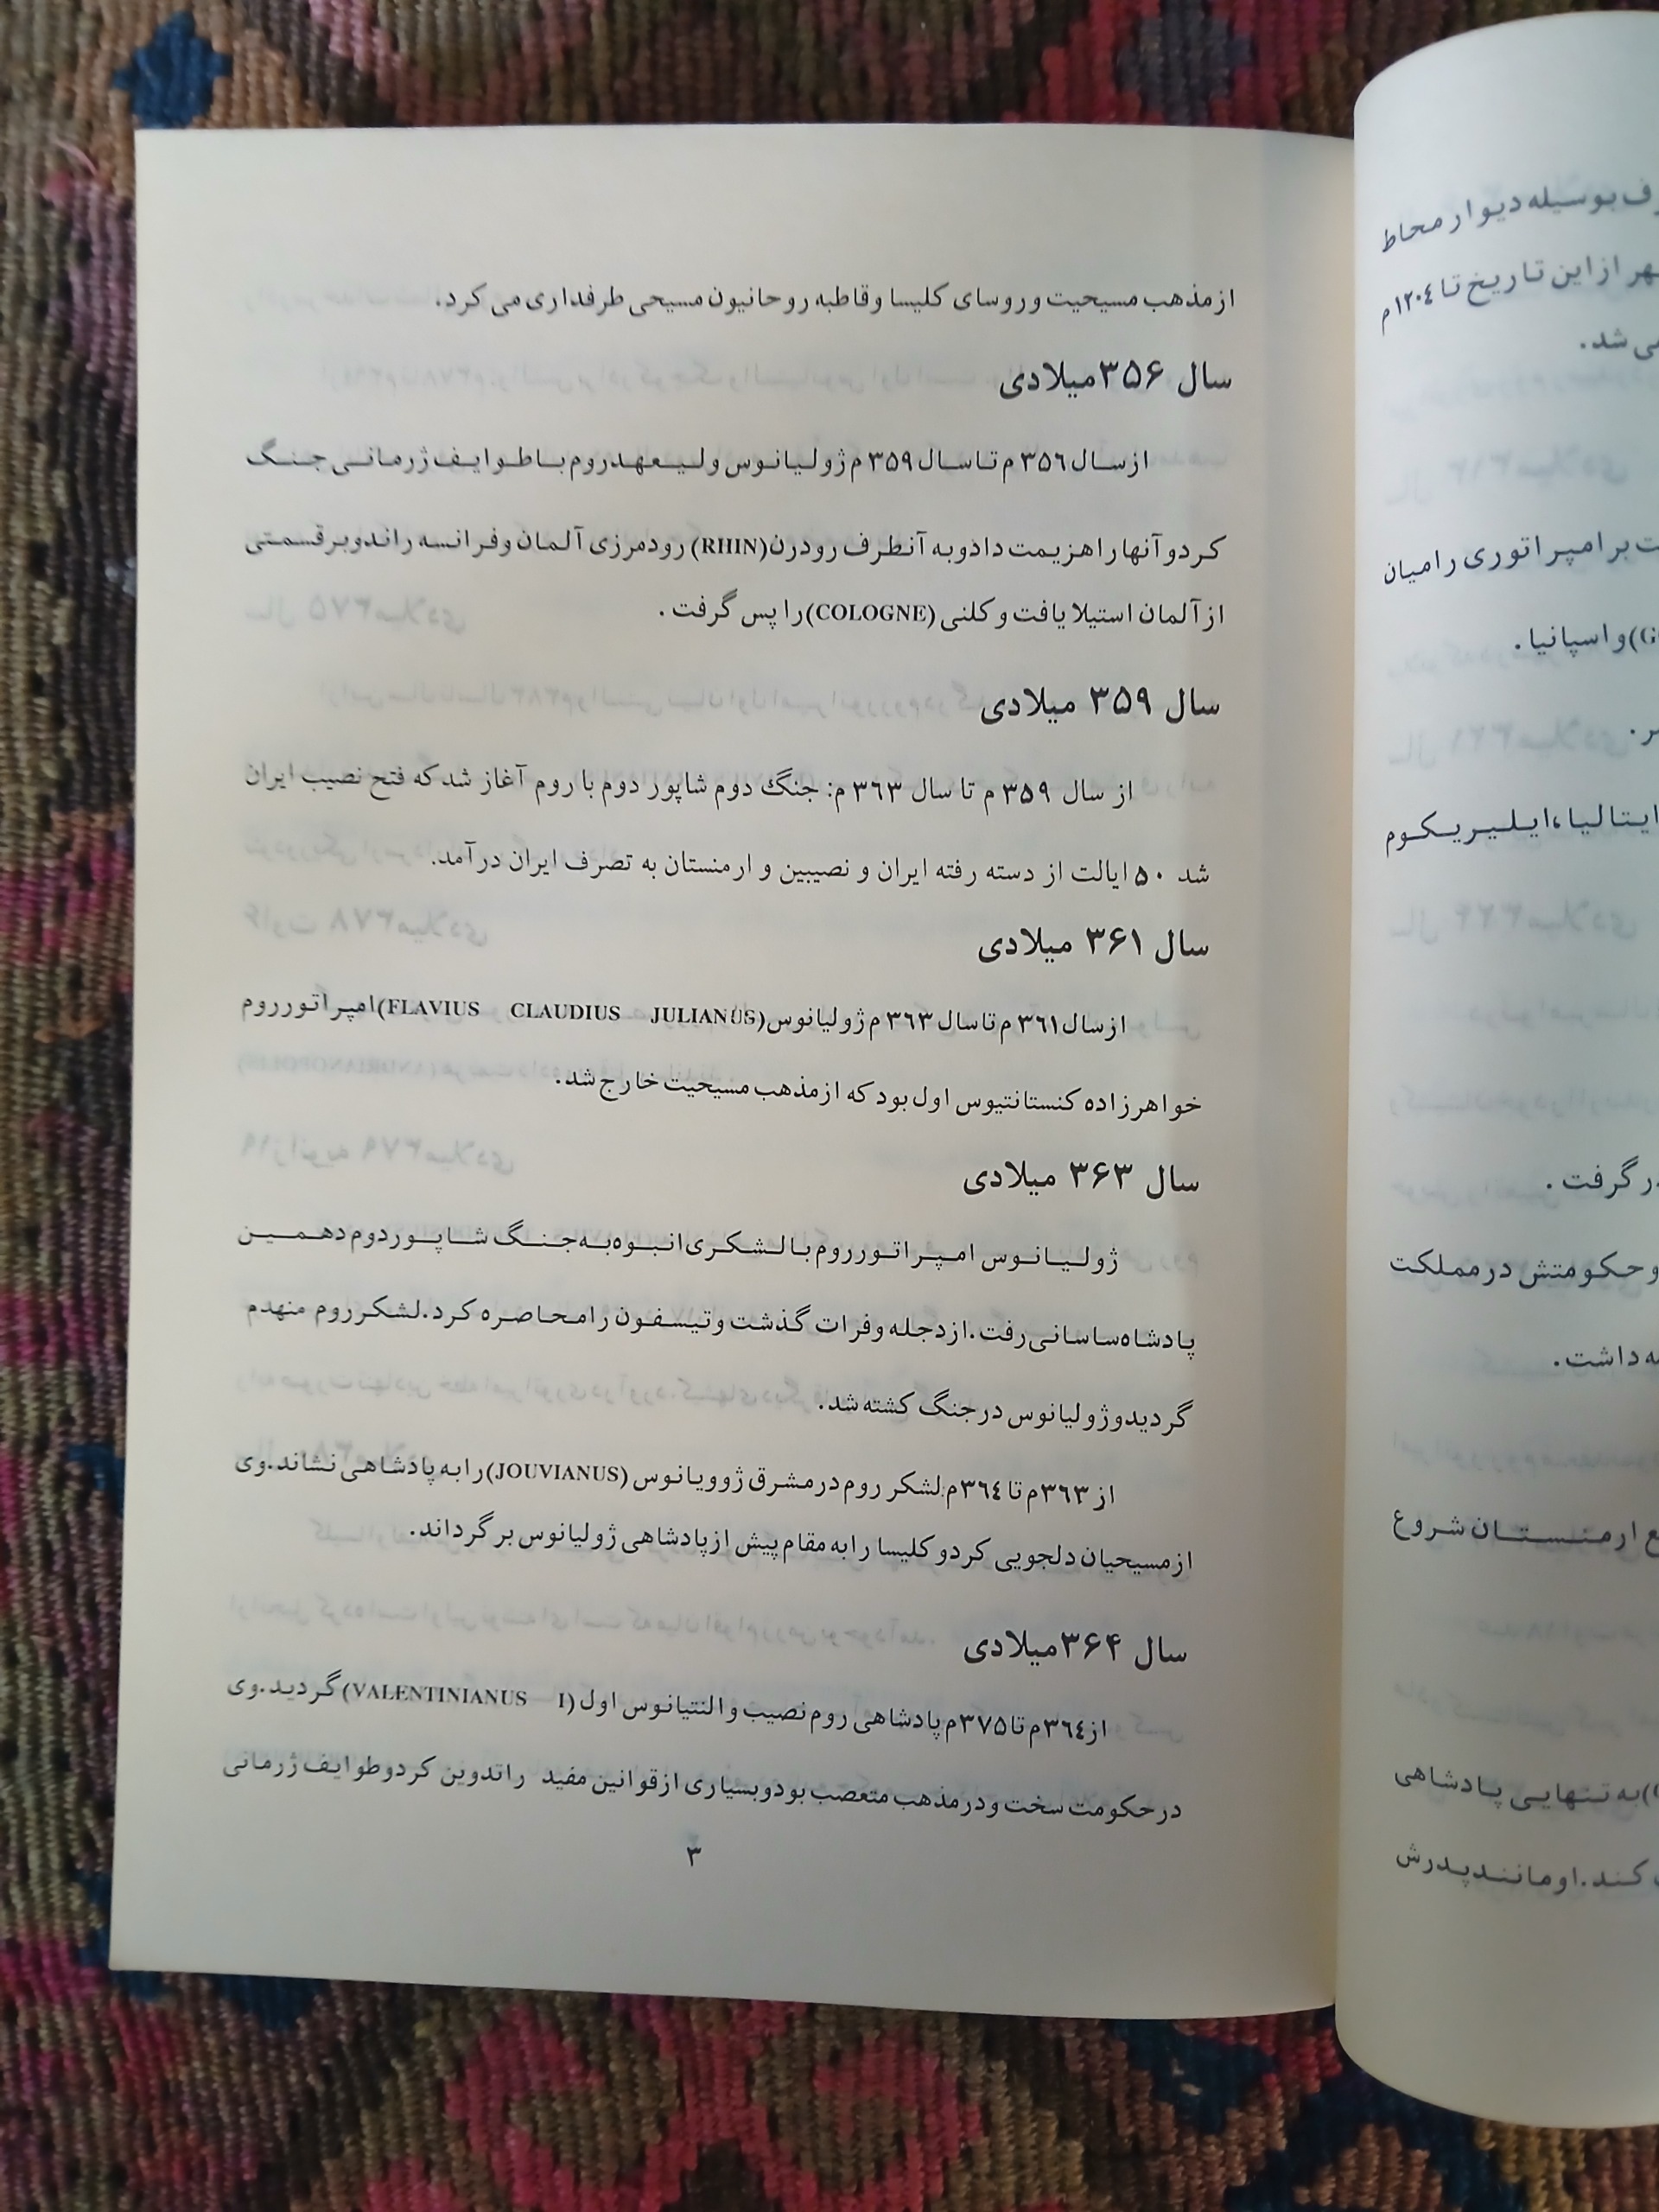 از مذهب مسیحیت و روسای کلیسا و قاطبه روحانیون مسیحی طرفداری می کرد.
سال ۳۵۶ میلادی
از سال ۳۵۶ م تا سال ۳۵۹ م ژولیانوس ولیعهد روم با طوایف ژرمانی جنگ
کرد و آنها را هزیمت داد و به آنطرف رود رن (RHIN) رود مرزی آلمان و فرانسه راند و بر قسمتی
از آلمان استیلا یافت و کلنی (COLOGNE) را پس گرفت .
سال ۳۵۹ میلادی
از سال ۳۵۹ م تا سال ۳۶۳ م: جنگ دوم شاپور دوم با روم آغاز شد که فتح نصیب ایران
شد ۵۰ ایالت از دسته رفته ایران و نصیبین و ارمنستان به تصرف ایران درآمد.
سال ۳۶۱ میلادی
از سال ۳۶۱ م تا سال ۳۶۳ م ژولیانوس (FLAVIUS CLAUDIUS JULIANUS) امپراتور روم
خواهرزاده کنستانتیوس اول بود که از مذهب مسیحیت خارج شد.
سال ۳۶۳ میلادی
ژولیانوس امپراتور روم با لشکری انبوه به جنگ شاپور دوم دهمین
پادشاه ساسانی رفت. از دجله و فرات گذشت و تیسفون را محاصره کرد. لشکر روم منهدم
گردید و ژولیانوس در جنگ کشته شد.
از ۳۶۳ م تا ۳۶۴ م: لشکر روم در مشرق ژوویانوس (JOUVIANUS) را به پادشاهی نشاند. وی
از مسیحیان دلجویی کرد و کلیسا را به مقام پیش از پادشاهی ژولیانوس برگرداند.
سال ۳۶۴ میلادی
از ۳۶۴ م تا ۳۷۵ م پادشاهی روم نصیب والنتیانوس اول (VALENTINIANUS I) گردید. وی
در حکومت سخت و در مذهب متعصب بود و بسیاری از قوانین مفید را تدوین کرد و طوایف ژرمانی
۳
بوسیله دیوار محاط
از این تاریخ تا ۱۲۰۴ م
می شد.
بر امپراتوری را میان
) و اسپانیا .
ایتالیا، ایلیریکوم
در گرفت .
و حکومتش در مملکت
داشت.
ارمنستان شروع
) به تنهایی پادشاهی
کند. او مانند پدرش